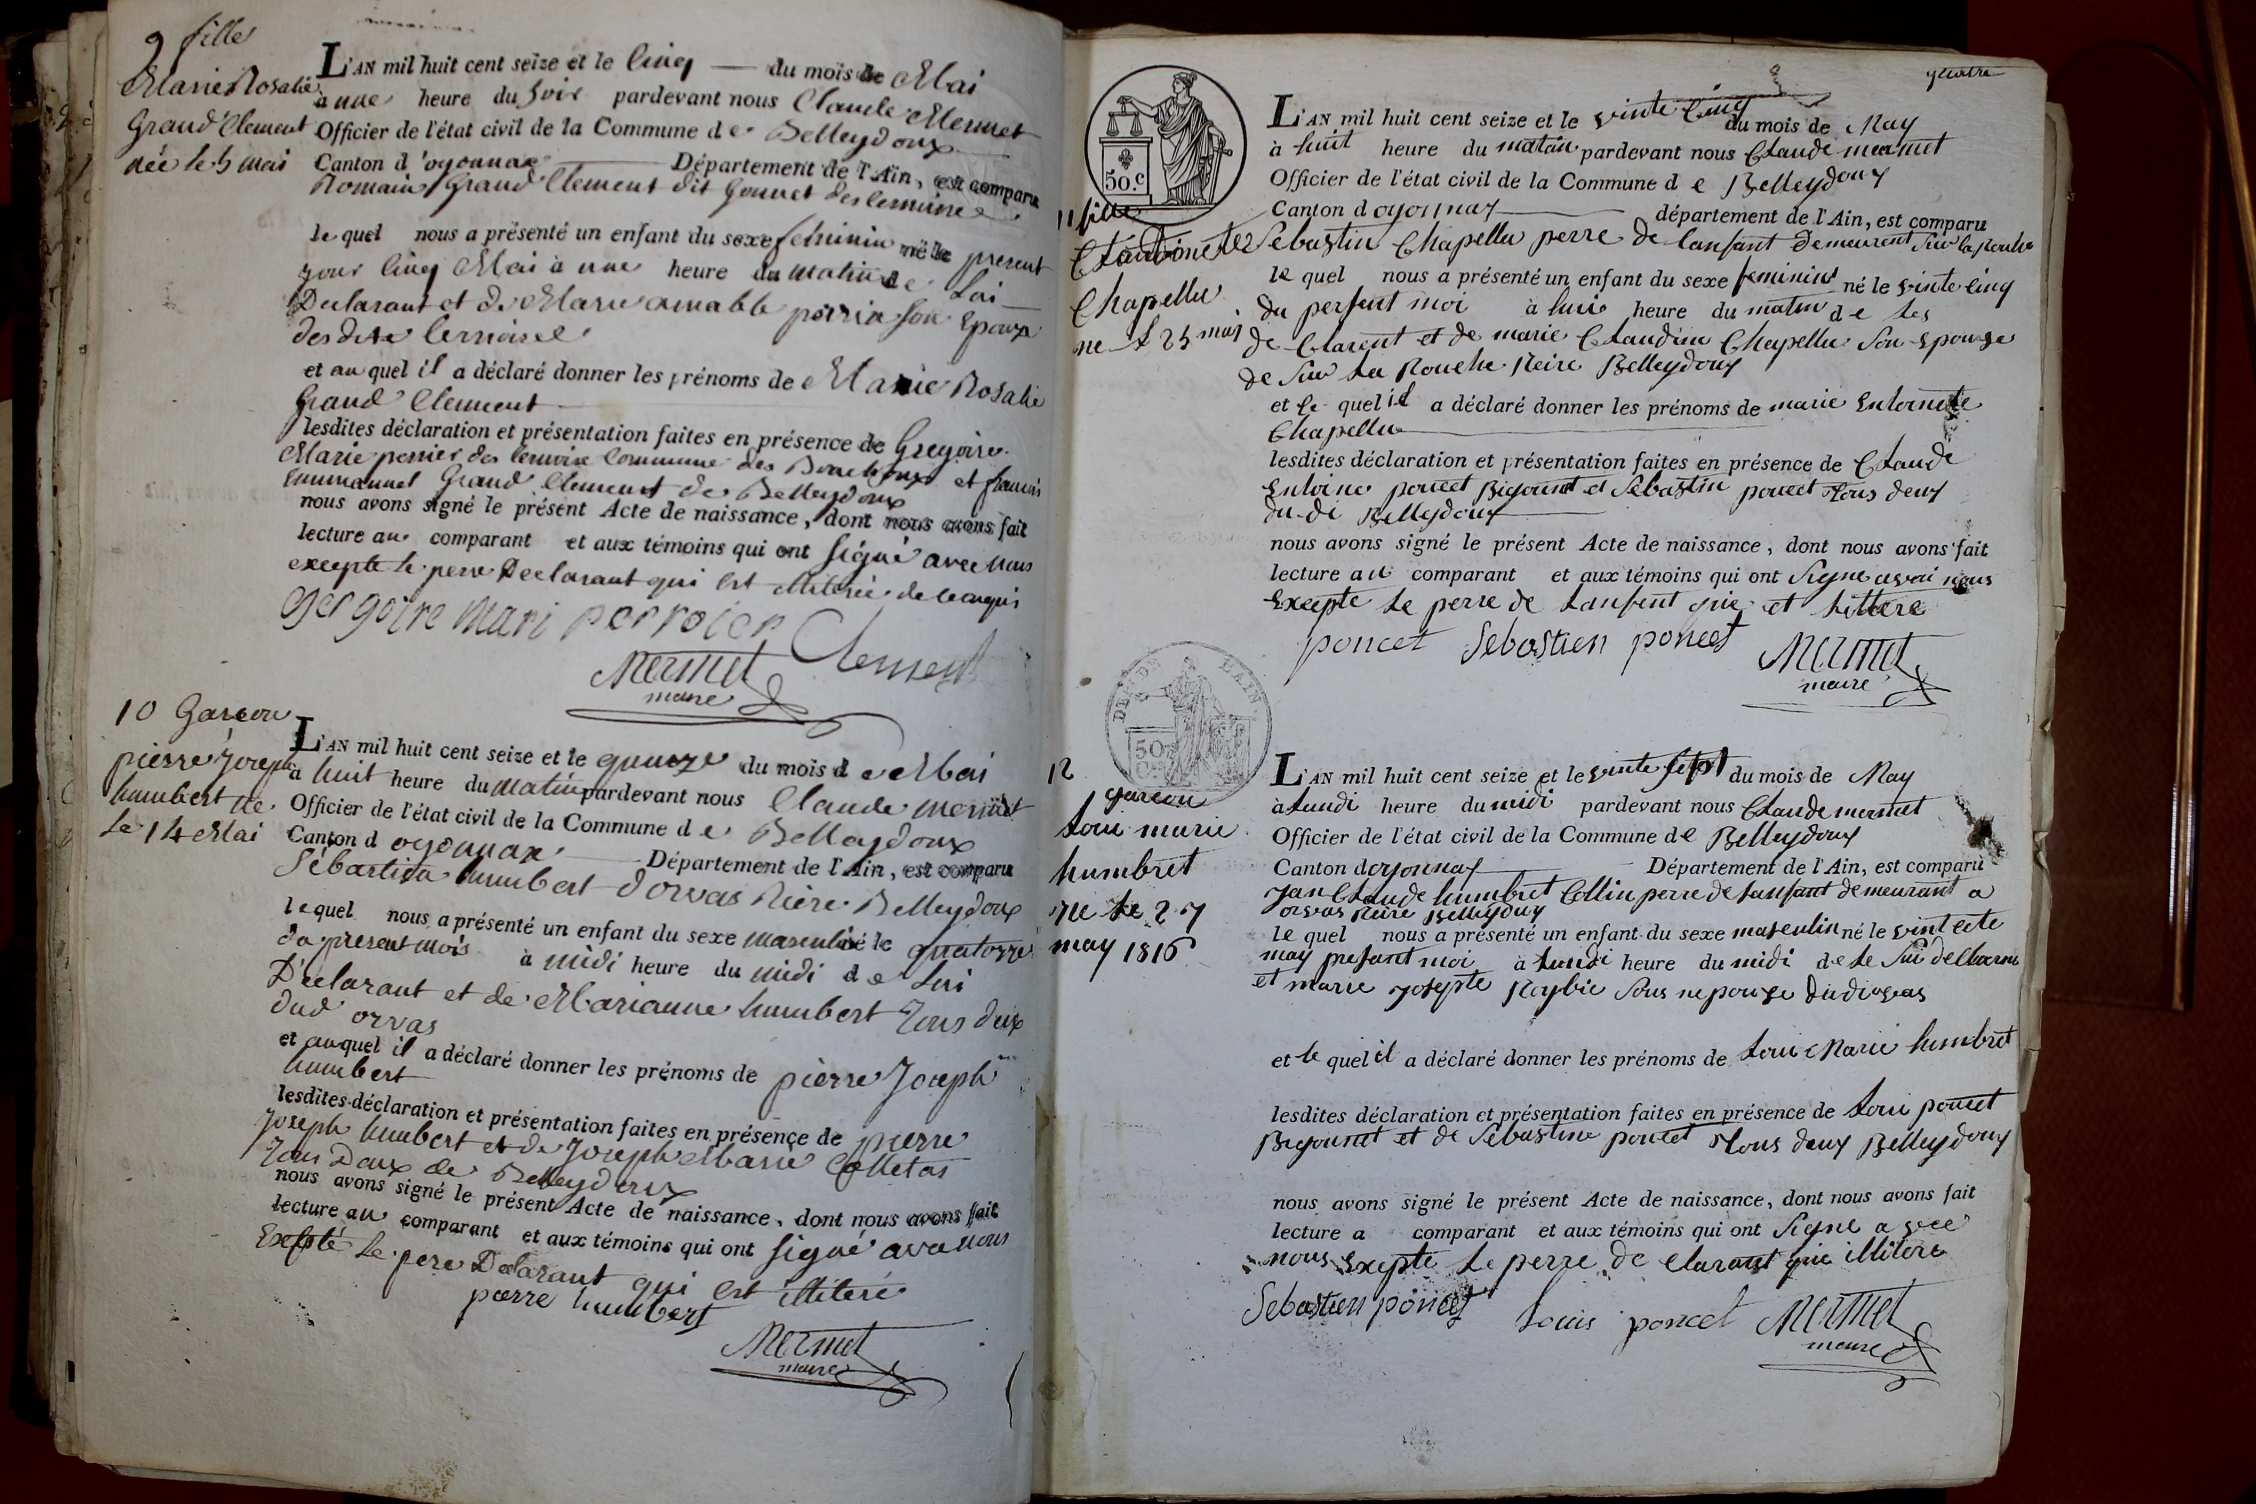 9 fille
Marie Rosalie
Grand Clement
née le 5 mai
L'AN mil huit cent seize et le Cinq du mois de Mai
à une heure du soir pardevant nous Claude Mermet
Officier de l'état civil de la Commune de Belleydoux
Canton d'oyonnax Département de l'Ain, est comparu
Romain Grand Clement dit
lequel nous a présenté un enfant du sexe feminin né le present
jour cinq Mai à une heure du matin de Lui
Declarant et de Marie amable perrin son Epouse
et auquel il a déclaré donner les prénoms de Marie Rosalie
Grand Clement
lesdites déclaration et présentation faites en présence de Gregoire
Marie perrier des Commune des Bouchoux et francois
Emmanuel Grand Clement de Belleydoux
nous avons signé le présent Acte de naissance, dont nous avons fait
lecture au comparant et aux témoins qui ont signé avec nous
excepte le pere Declarant qui est illiteré de ce enquis
gergoire mari perroier Clement
Mermet
maire
10 Garcon
pierre Joseph
humbert né
Le 14 Mai
L'AN mil huit cent seize et le quinze du mois de Mai
à huit heure du matin pardevant nous Claude mermet
Officier de l'état civil de la Commune de Belleydoux
Canton d oyonnax Département de l'Ain, est comparu
Sébastien humbert d'orvas Riere Belleydoux
lequel nous a présenté un enfant du sexe masculin né le quatorze
du present mois à midi heure du midi de Lui
Déclarant et de Marianne humbert Tous deux
dud orvas
et auquel il a déclaré donner les prénoms de pierre Joseph
humbert
lesdites déclaration et présentation faites en présence de pierre
Joseph humbert et de Joseph Marie Colletas
Tous Deux de Belleydoux
nous avons signé le présent Acte de naissance, dont nous avons fait
lecture au comparant et aux témoins qui ont signé avec nous
Exepté Le pere Declarant qui Est illiteré
pierre humbert
Mermet
maire
quatre
50.c
11 fille
Chapellu
ne le 25 mai
L'AN mil huit cent seize et le vinte Cinq du mois de May
à huit heure du matin pardevant nous Claude mermet
Officier de l'état civil de la Commune de Belleydoux
Canton d oyonnax département de l'Ain, est comparu
Sebastin Chapellu perre de lanfant Demeurent Sur la Rouche
le quel nous a présenté un enfant du sexe feminin né le vinte cinq
du persent moi à huit heure du matin de les
de Clarent et de marie Claudine Chapellu Son Epouse
de Sur La Rouche Reire Belleydoux
et le quel il a déclaré donner les prénoms de marie Entoinete
Chapellu
lesdites déclaration et présentation faites en présence de Claude
Entoine poncet Bigounet et Sebastin poncet Tous deux
du di Belleydoux
nous avons signé le présent Acte de naissance, dont nous avons fait
lecture au comparant et aux témoins qui ont Signe avai nous
Excepte Le perre de Lanfent qui et Littere
poncet Sebastien poncet Mermet
maire
50
12
garcon
Loui marie
humbret
ne Le 27
may 1816
L'AN mil huit cent seize et le vinte sept du mois de May
à Lundi heure du midi pardevant nous Claude mermet
Officier de l'état civil de la Commune de Belleydoux
Canton doyonnax Département de l'Ain, est comparu
Jan Claude humbret Collin perre de Lanfant demeurant a
orvas Reire Belleydoux
le quel nous a présenté un enfant du sexe masculin né le vint cete
may presant moi à Lundi heure du midi de
et marie Josepte Reybie Sous nepouze dudi orvas
et le quel il a déclaré donner les prénoms de Loui Marie humbret
lesdites déclaration et présentation faites en présence de Loui poncet
Bigounet et de Sebastine poncet Tous deux Belleydoux
nous avons signé le présent Acte de naissance, dont nous avons fait
lecture a comparant et aux témoins qui ont Signe avec
nous Exepte Le perre de Clarant qui illitere
Sebastien poncet Louis poncet Mermet
maire